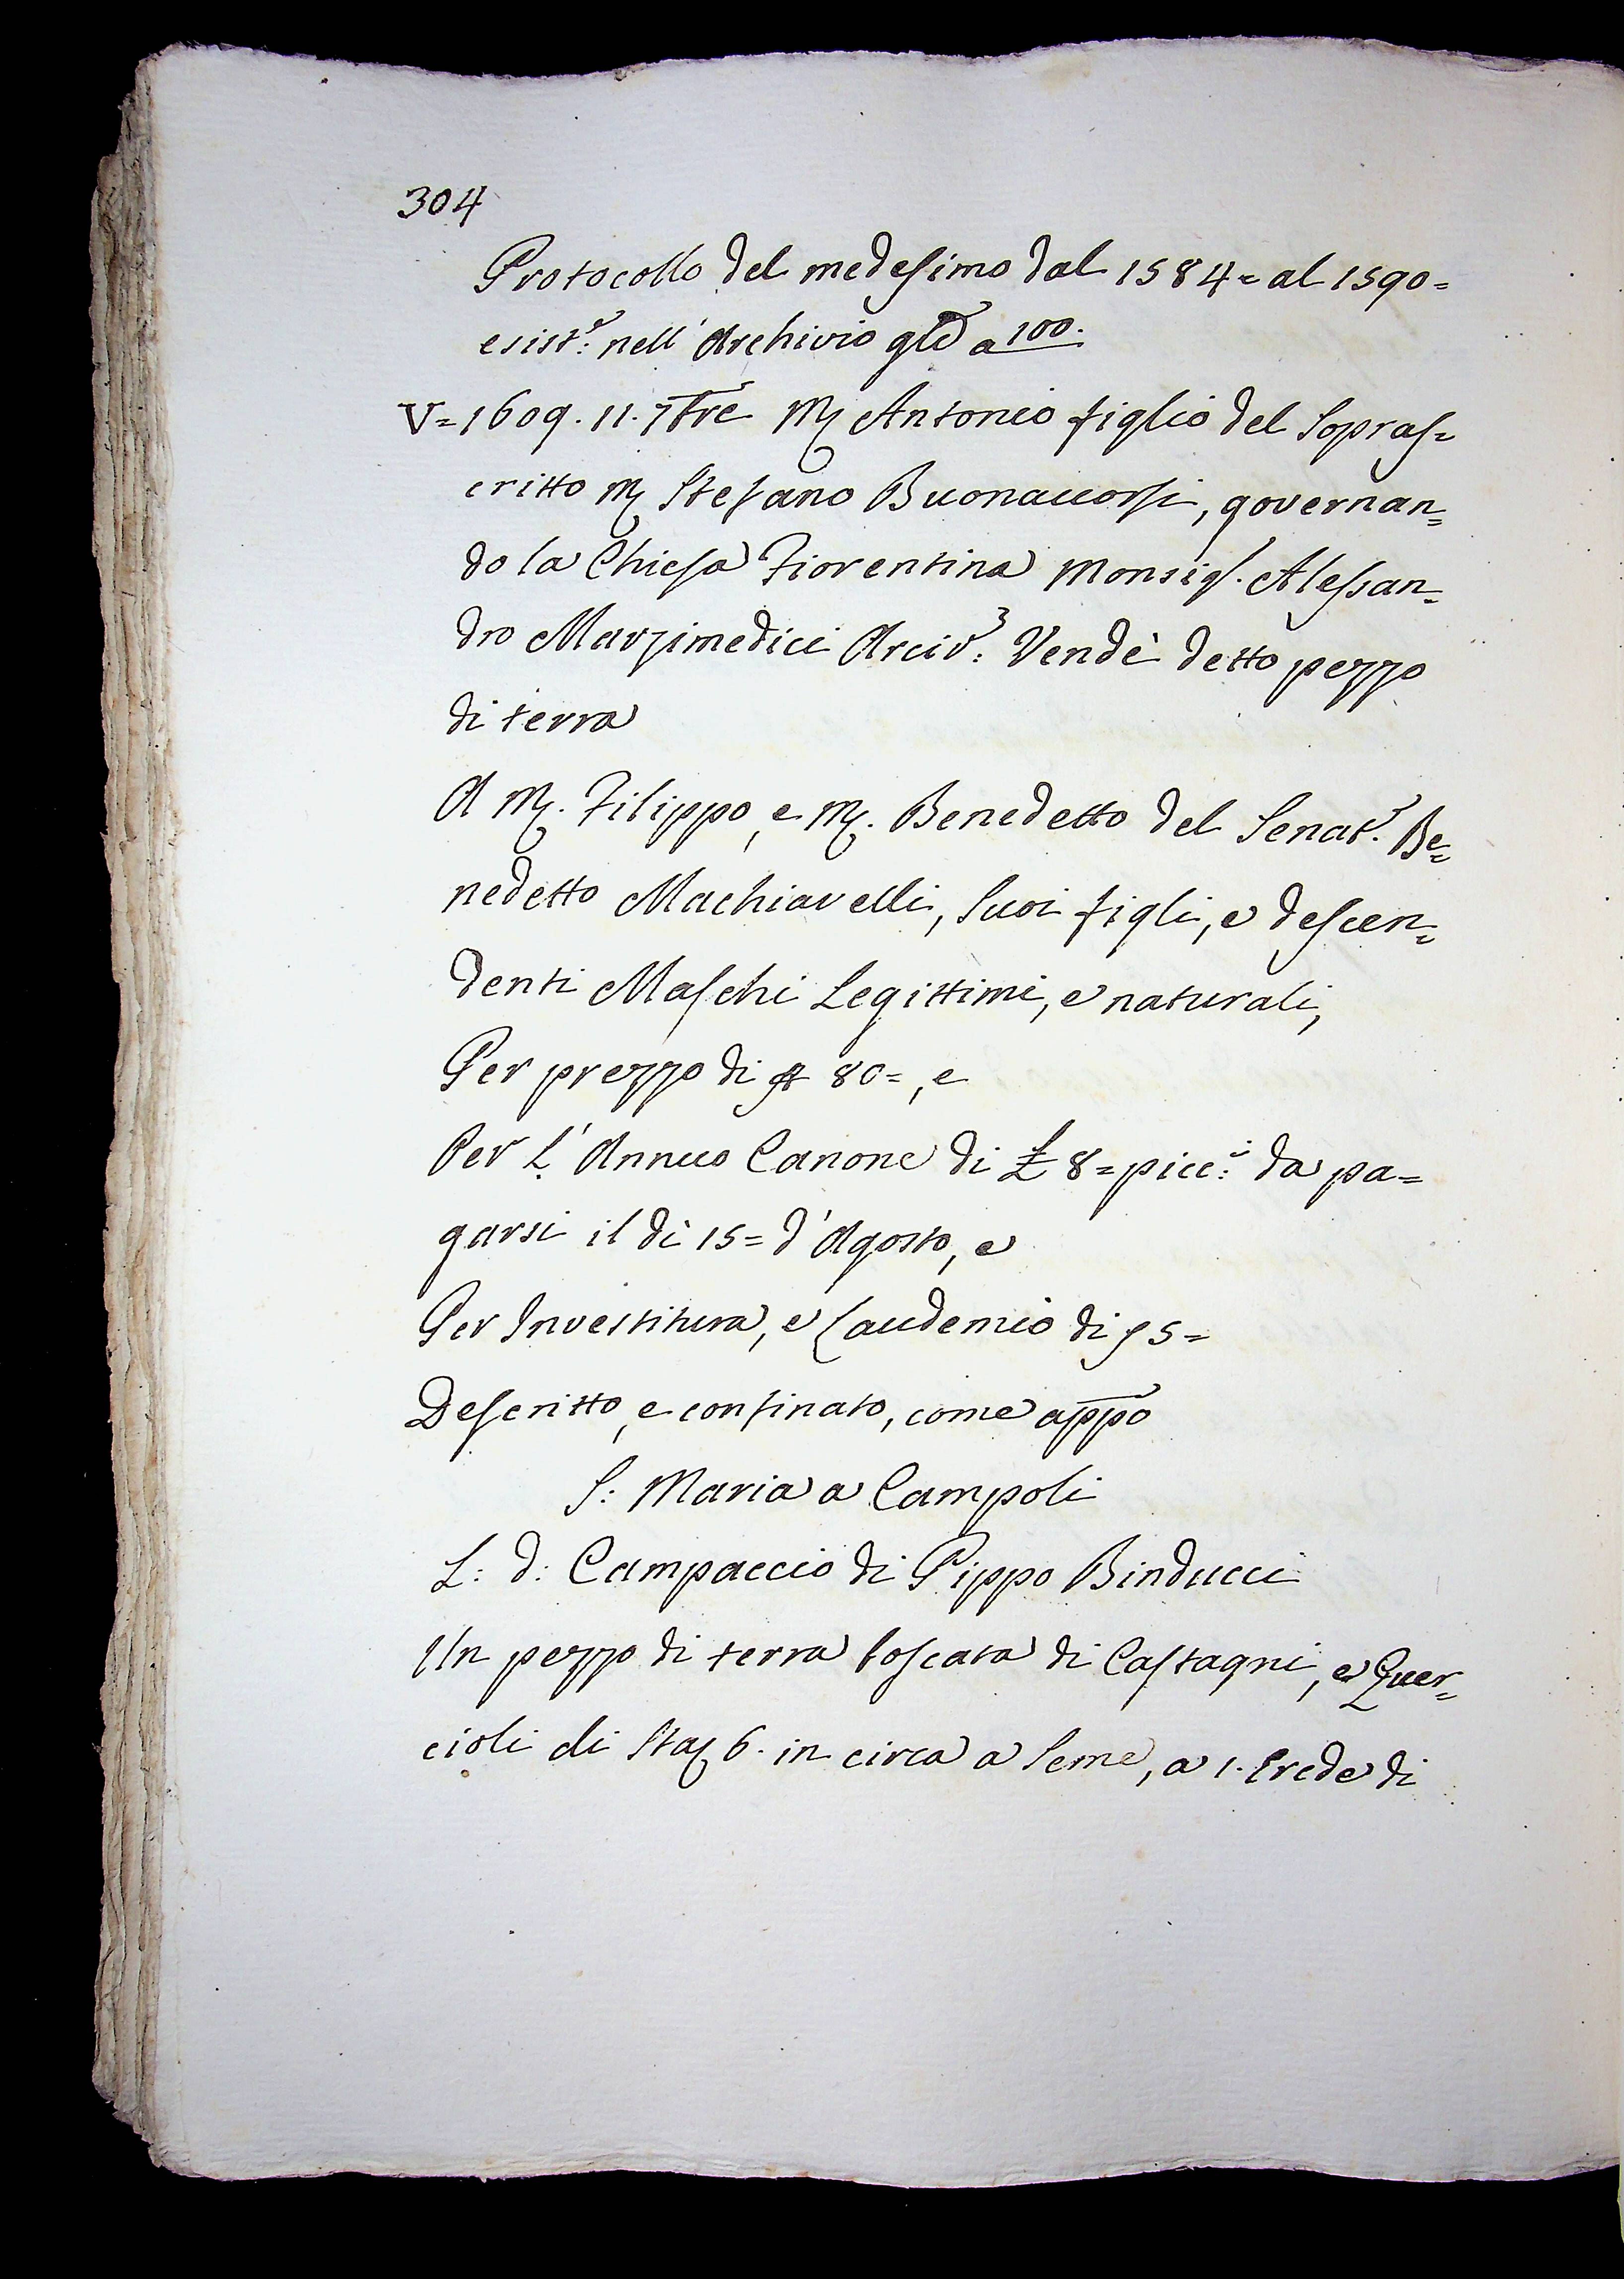 304
Protocollo del medesimo dal 1584= al 1590=
esist.e: nell'Archivio glē a 100.
V= 1609. 11. 7bre M. Antonio figlio del Sopras=
critto M. Stefano Buonaccorsi, governan=
do la Chiesa Fiorentina Monsig.r Alessan=
dro Marzimedici Arciv.: Vendè detto pezzo
di terra
A M. Filippo, e M. Benedetto del Senat.r Be=
nedetto Machiavelli, Suoi figli, e descen=
denti Maschi Legittimi, e naturali,
Per prezzo di 80=, e
Per L'Annuo Canone di £ 8= picc.i: da pa=
garsi il dì 15= d'Agosto, e
Per Investitura, e Laudemio di 5=
Descritto, e confinato, come appō
S: Maria a Campoli
L: d: Campaccio di Pippo Binducci
Un pezzo di terra boscata di Castagni, e Quer=
cioli di Sta. 6. in circa a Seme, a 1. Erede di